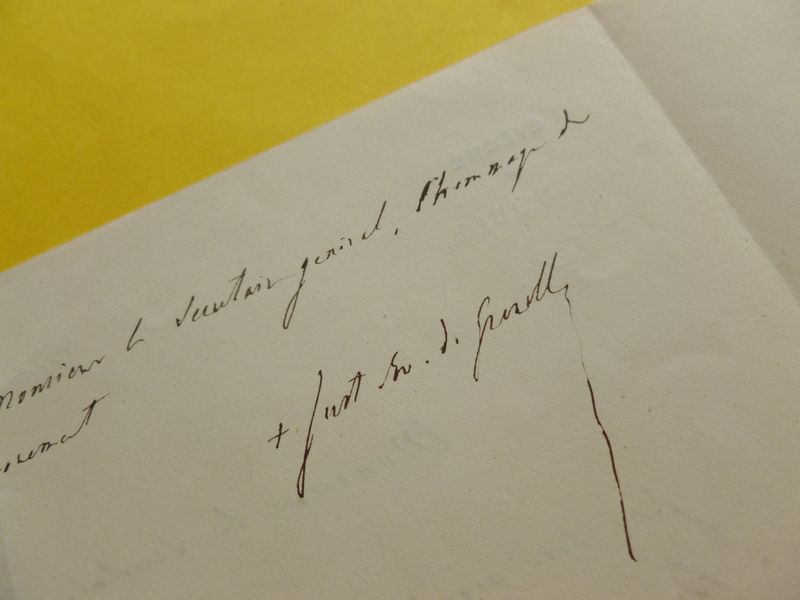 Monsieur le Secrétaire général, l'hommage de
+ Just Ev. d. Grenoble